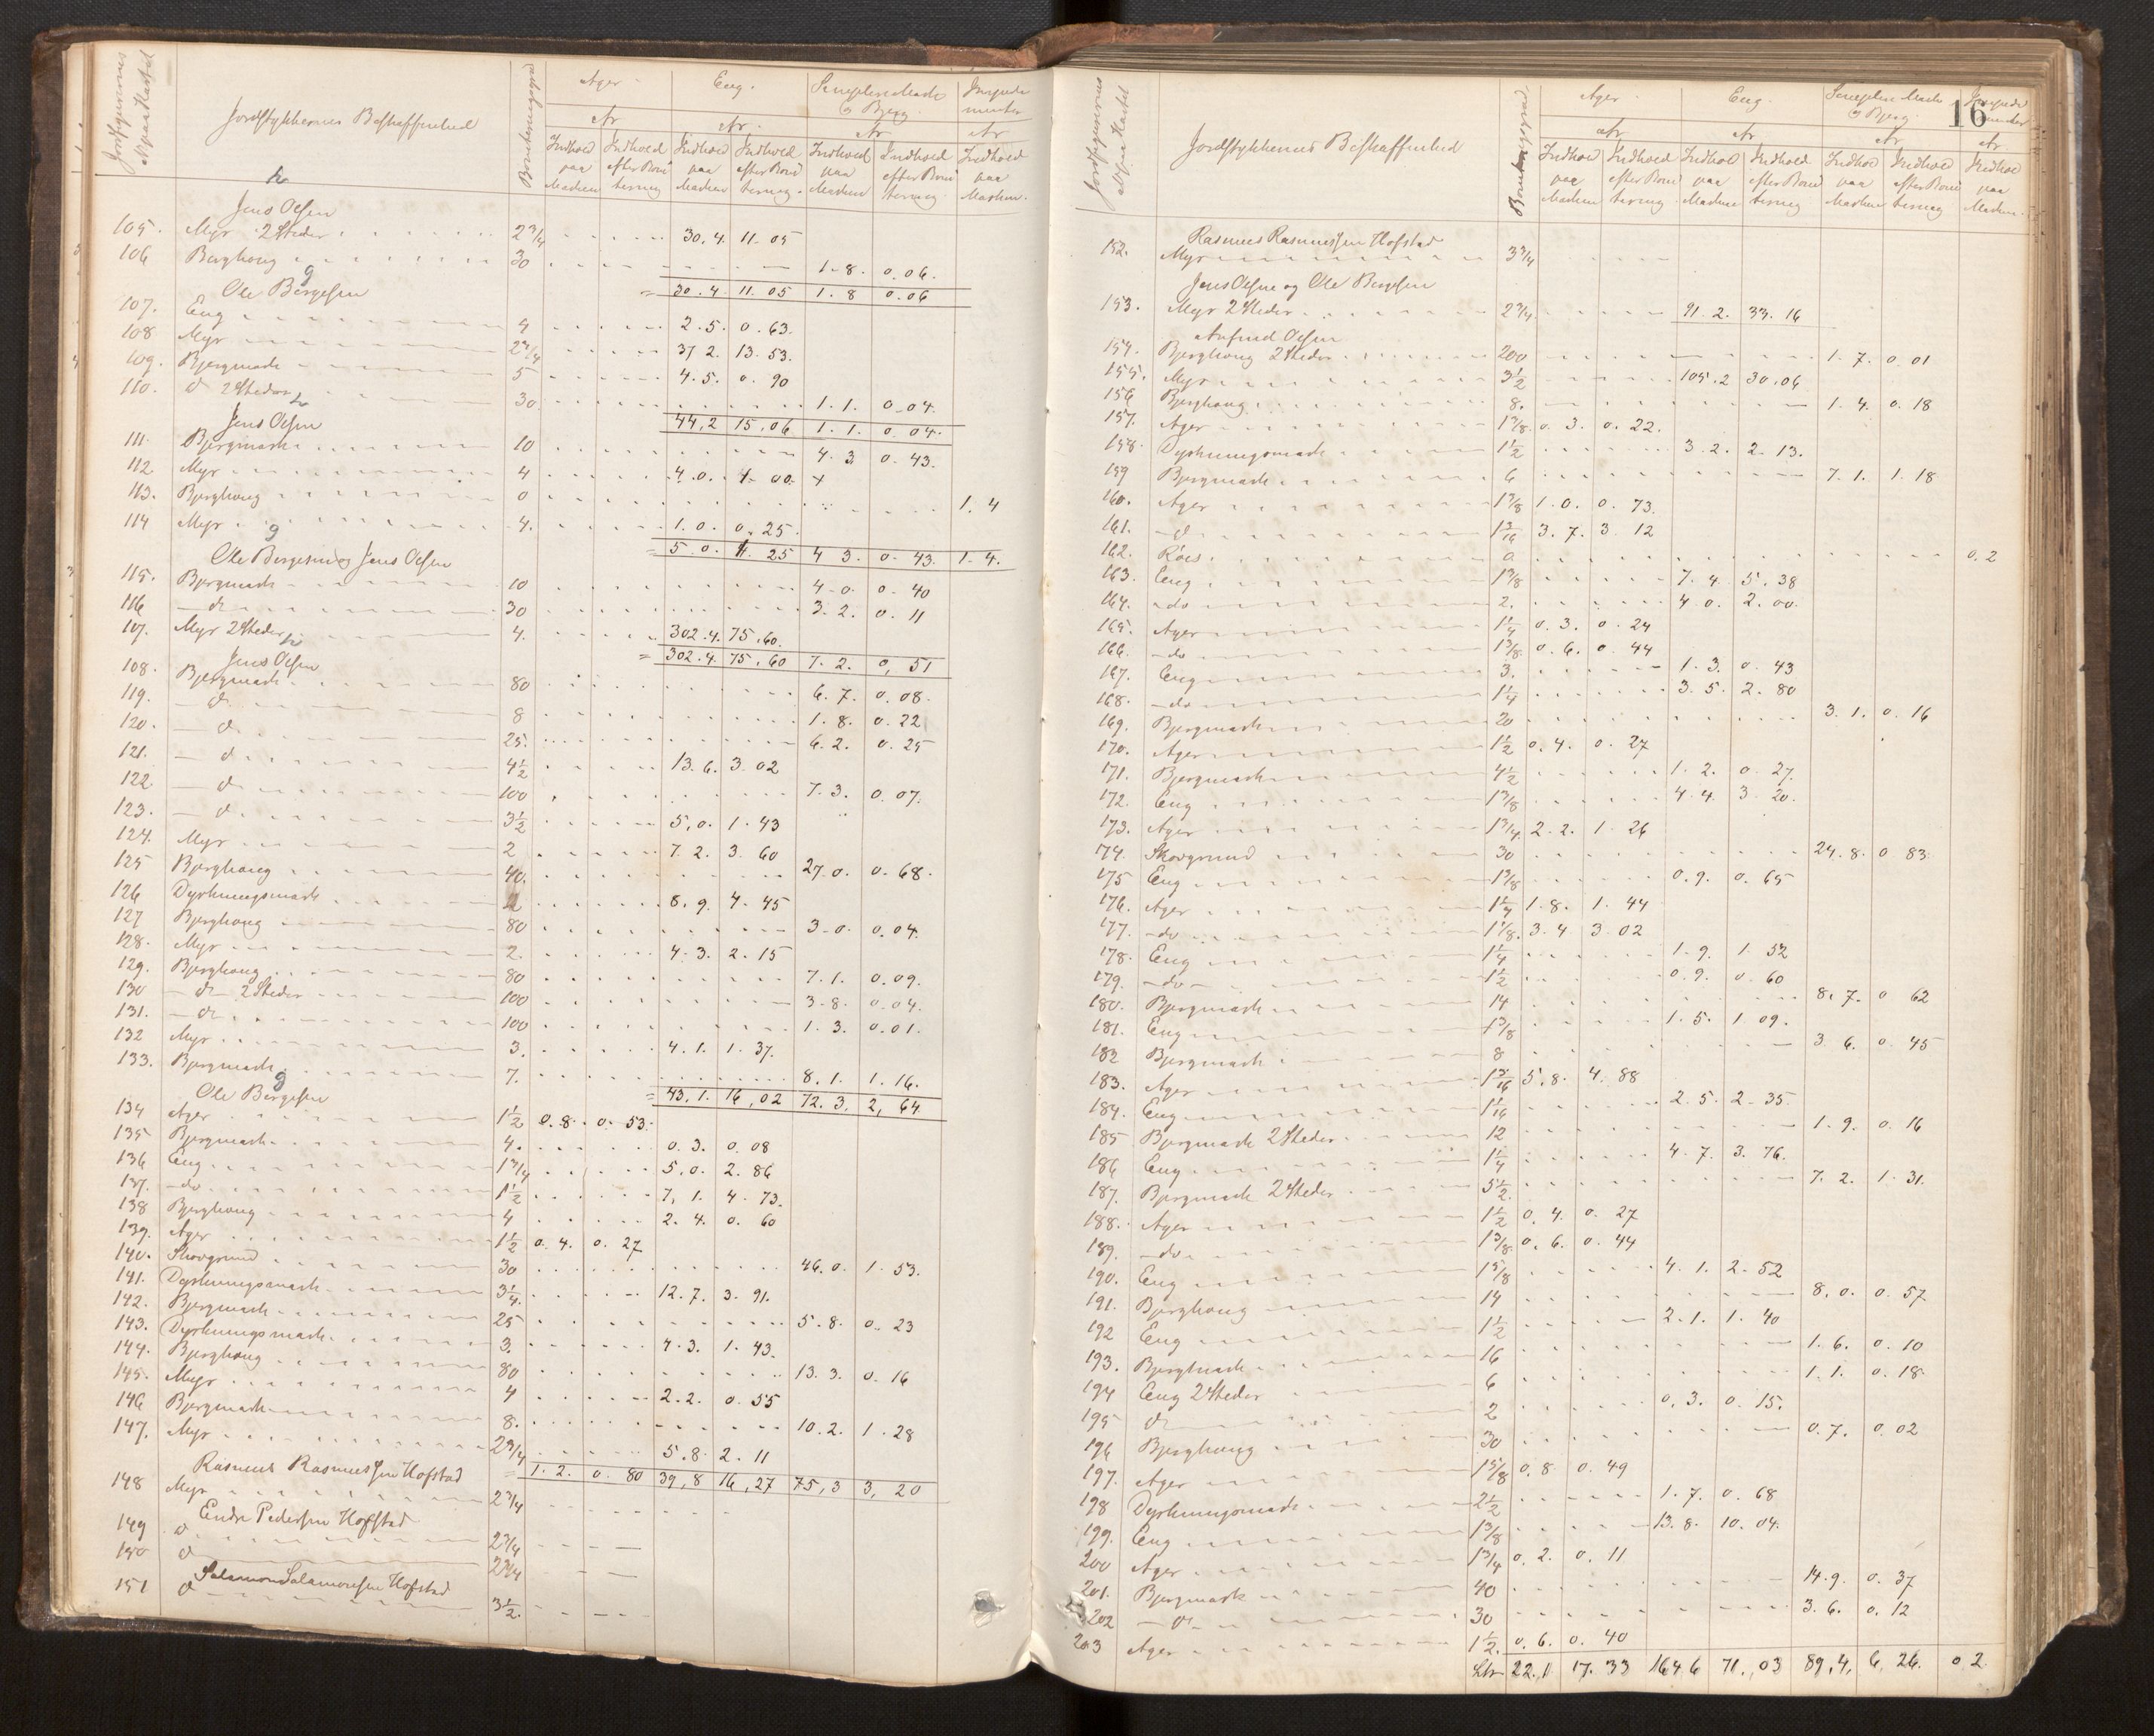 Jordfigurernes No paa Kartet
Jordstykkernes Beskaffenhed
Boniteringsgrad
Ager Eng. Simplere Mark og Bjerg Impedimenter
Ar Ar. Ar Ar
Indhold paa Marken Indhold efter Bonitering Indhold paa Marken Indhold efter Bonitering Indhold paa Marken Indhold efter Bonitering Indhold paa Marken.
Jens Olsen
105. Myr 2 Steder 2 3/4 30.4 11.05
106 Berghoug 30 1.8. 0.06.
= 30.4 11.05 1.8 0.06
Ole Børgesen
107. Eng 4 2.5. 0.63.
108 Myr 2 3/4 37 2. 13.53.
109. Bjergmark 5 4.5. 0.90
110. d 2 Steder 30. 1.1. 0.04.
44,2 15,06 1.1. 0.04.
Jens Olsen
111. Bjergmark 10 4.3 0.43.
112. Myr 4 4.0. 1.00. +
113. Bjerghoug 0 1.4
114 Myr 4. 1.0. 0.25.
= 5.0. 1.25 4 3. 0.43. 1.4.
Ole Børgesen og Jens Olsen
115. Bjergmark 10 4.0. 0.40
116 d 30 3.2. 0.11
107. Myr 2 Steder 4. 302.4. 75.60.
= 302.4. 75,60 7.2. 0,51
Jens Olsen
108. Bjergmark 80 6.7. 0.08.
119. d 8 1.8. 0.22
120. d 25. 6.2. 0.25
121. d 4 1/2 13.6. 3.02
122 d 100 7.3. 0.07.
123. d 3 1/2 5,0. 1.43
124. Myr 2 7.2. 3.60
125 Bjerghoug 40. 27.0. 0.68.
126 Dyrkningsmark 2 8.9. 4.45
127 Bjerghoug 80 3.0. 0.04.
128. Myr 2. 4.3. 2.15
129. Bjerghoug 80 7.1. 0.09.
130 d 2 Steder 100 3.8. 0.04.
131. d 100 1.3. 0.01.
132 Myr 3. 4.1. 1.37.
133. Bjergmark 7. 8.1. 1.16.
= 43,1. 16,02 72.3. 2,64
Ole Børgesen
134 Ager 1 1/2 0.8. 0.53.
135 Bjergmark 4. 0.3. 0.08
136 Eng 1 3/4 5,0. 2.86
137. do 1 1/2 7,1. 4.73.
138 Bjerghoug 4 2.4. 0.60
139. Ager 1 1/2 0.4. 0.27
140. Skovgrund 30 46.0. 1.53.
141. Dyrkningsmark 3 1/4. 12.7. 3.91.
142. Bjergmark 25 5.8. 0.23
143. Dyrkningsmark 3. 4.3. 1.43.
144. Bjerghoug 80 13.3. 0.16
145. Myr 4 2.2. 0.55
146 Bjergmark 8. 10.2. 1.28
147. Myr 2 3/4 5.8. 2.11
= 1.2. 0.80 39,8 16,27 75,3 3,20
Rasmus Rasmussen Hofstad
148 Myr 2 3/4
Endre Pedersen Hofstad
149 d 2 3/4
150 d 2 3/4
Salamon Salamonsen Hofstad
151 d 3 1/2.
16
Jordfigurernes No paa Kartet
Jordstykkernes Beskaffenhed
Boniteringsgrad.
Ager Eng. Simplere Mark og Bjerg. Impedimenter
Ar Ar Ar Ar.
Indhold paa Marken Indhold efter Bonitering Indhold paa Marken Indhold efter Bonitering Indhold paa Marken Indhold efter Bonitering Indhold paa Marken.
Rasmus Rasmussen Hofstad
152. Myr 3 3/4
Jens Olsen og Ole Børgesen
153. Myr 2 Steder 2 3/4. 91.2. 33.16
Anfind Olsen
154. Bjerghoug 2 Steder 200 1.7. 0.01
155. Myr 3 1/2 105.2 30.06
156 Bjerghoug 8. 1.4. 0.18
157. Ager 1 3/8. 0.3. 0.22.
158. Dyrkningsmark 1 1/2 3.2. 2.13.
159 Bjergmark 6 7.1. 1.18
160. Ager 1 3/8 1.0. 0.73.
161. d 1 3/16 3.7. 3.12
162. Røis 0 0.2
163. Eng 1 3/8 7.4. 5.38
164. do 2. 4.0. 2.00.
165. Ager 1 1/4 0.3. 0.24
166. do 1 3/8 0.6. 0.44
167. Eng 3. 1.3. 0.43
168. do 1 1/4 3.5. 2.80
169. Bjergmark 20 3.1. 0.16
170. Ager 1 1/2 0.4. 0.27
171. Bjergmark 4 1/2 1.2. 0.27.
172. Eng 1 3/8 4.4. 3.20.
173. Ager 1 3/4. 2.2. 1.26
174. Skovgrund 30 24.8. 0.83.
175 Eng 1 3/8 0.9. 0.65
176. Ager 1 1/4 1.8. 1.44
177. do 1 1/8. 3.4 3.02
178. Eng 1 1/4 1.9. 1.52
179. do 1 1/2 0.9. 0.60
180. Bjergmark 14 8.7. 0.62
181. Eng 1 3/8 1.5. 1.09.
182 Bjergmark 8 3.6. 0.45
183. Ager 1 3/16 5.8. 4.88
184. Eng 1 1/16 2.5. 2.35.
185 Bjergmark 2 Steder 12 1.9. 0.16
186 Eng 1 1/4 4.7. 3.76.
187. Bjergmark 2 Steder 5 1/2. 7.2. 1.31.
188. Ager 1 1/2 0.4. 0.27
189. do 1 3/8 0.6. 0.44
190. Eng 1 5/8 4.1. 2.52
191. Bjerghoug 14 8.0. 0.57
192 Eng 1 1/2 2.1. 1.40
193. Bjergmark 16 1.6. 0.10
194 Eng 2 Steder 6 1.1. 0.18
195 d 2 0.3. 0.15.
196 Bjerghoug 30 0.7. 0.02
197. Ager 1 5/8 0.8. 0.49
198 Dyrkningsmark 2 1/2 1.7. 0.68
199. Eng 1 3/8 13.8. 10.04.
200 Ager 1 3/4 0.2. 0.11
201. Bjergmark 40 14.9. 0.37
202 d 30 3.6. 0.12
203 Ager 1 1/2. 0.6. 0.40
22.1 17.33 164.6 71,03 89,4, 6,26. 0 2.